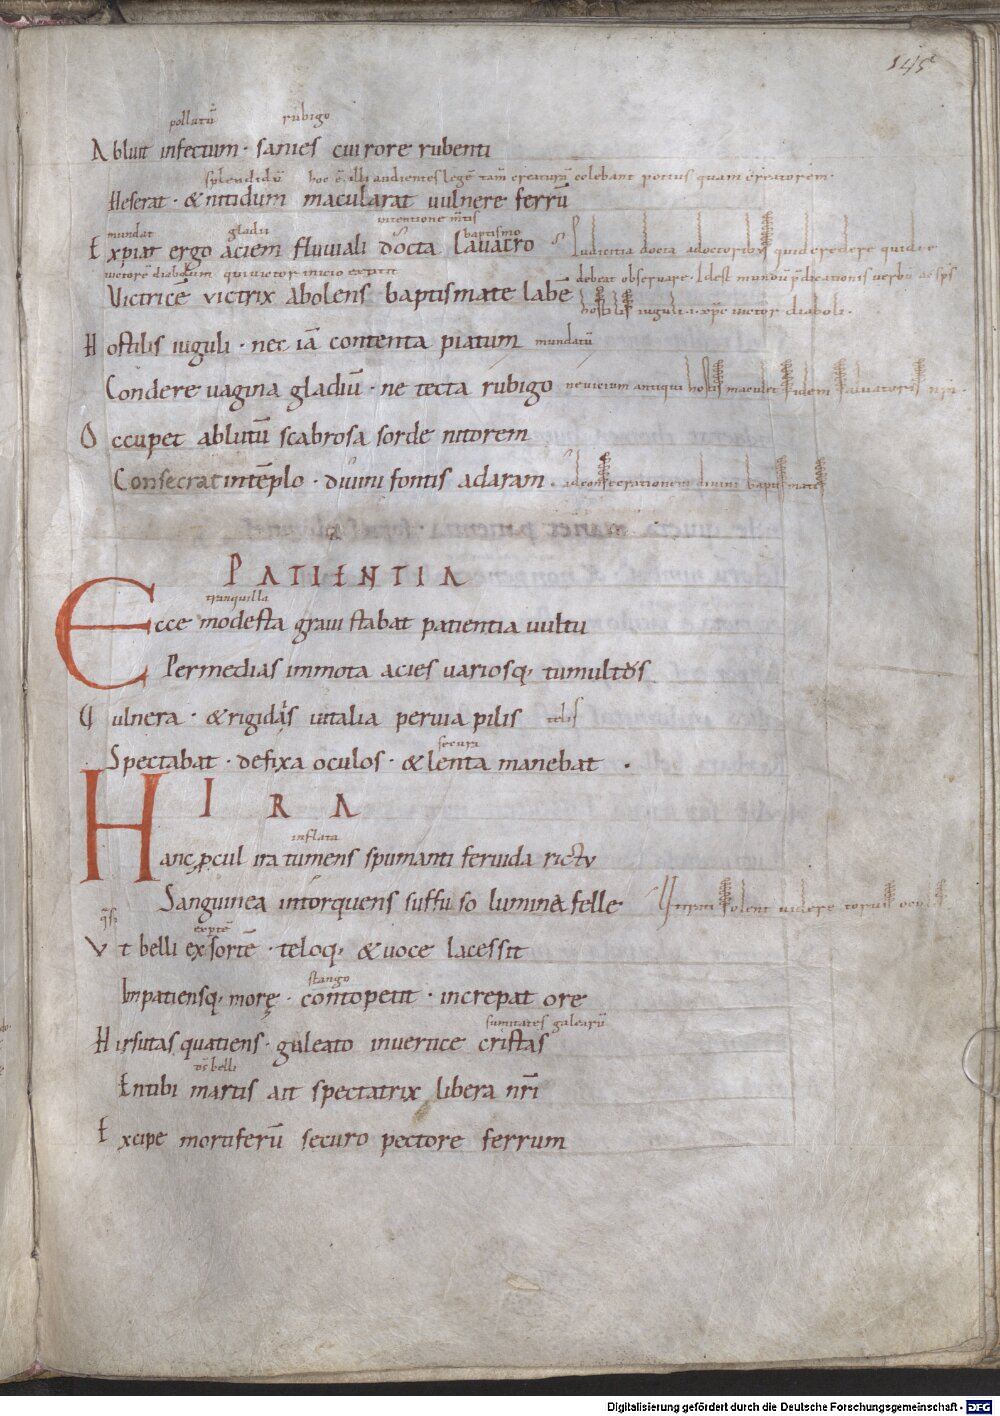 145
pollutū rubigo
Abluit infectum · sanies cui rore rubenti
splendidū hoc ē. illi audientes legē tam̄ creaturā colebant potius quam creatorem ·
Heserat · & nitidum macularat uulnere ferrū
intentione mtis
mundat gladii baptismo
Expiat ergo aciem fluuiali docta lauacro Pudicitia docta a doctoribus quid credere quid ē
uictorē diabolum qui uictor inicio extitit debeat obseruare · Idest mundū p̄dicationis uerbū
Victricē victrix abolens baptismate labē
hostilis iuguli · i · xp̄c uictor diaboli ·
Hostilis iuguli · nec iā contenta piatum mundatū
Condere uagina gladiū · ne tecta rubigo ne uicium antiqui hostis maculet fidem saluatoris nr̄i ·
Occupet ablutū scabrosa sorde nitorem
Consecrat in tēplo · diuini fontis ad aram · ad consecrationem diuini baptismatis
PATIENTIA
tranquilla
Ecce modesta graui stabat patientia uultu
Per medias immota acies variosq; tumultus
Vulnera · & rigidis uitalia peruia pilis telis
secura
Spectabat · defixa oculos · & lenta manebat ·
HIRA
inflata
Hanc ꝓcul ira tumens spumanti feruida rictv
Sanguinea intorquens suffuso lumina felle Irati solent uidere toruis oculis
expertē
Vt belli exsortē · teloq; & uoce lacessit
stango
Inpatiensq; morę · conto petit · increpat ore
sumitates galearū
Hirsutas quatiens · galeato in uertice cristas
ds̄ belli
En tibi martis ait spectatrix libera nr̄i
Excipe mortiferū securo pectore ferrum
Digitalisierung gefördert durch die Deutsche Forschungsgemeinschaft · DFG